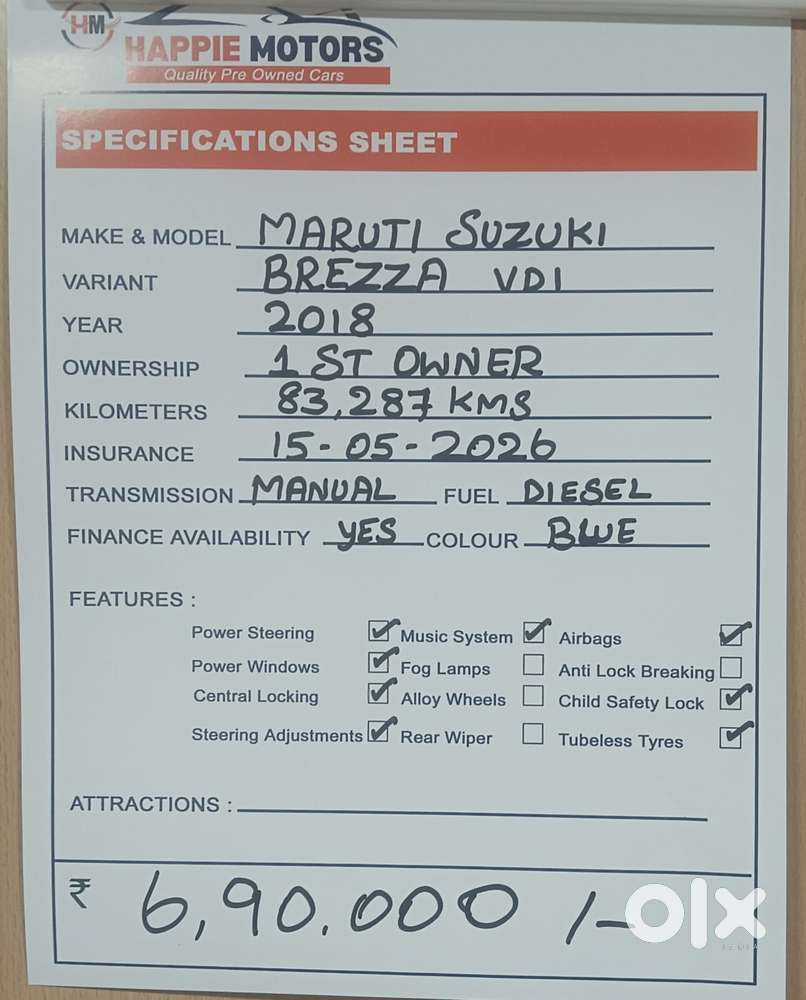 HM HAPPIE MOTORS
Quality Pre Owned Cars
SPECIFICATIONS SHEET
MAKE & MODEL MARUTI SUZUKI
VARIANT BREZZA VDI
YEAR 2018
OWNERSHIP 1 ST OWNER
KILOMETERS 83,287 KMS
INSURANCE 15-05-2026
TRANSMISSION MANUAL FUEL DIESEL
FINANCE AVAILABILITY YES COLOUR BLUE
FEATURES :
Power Steering Music System Airbags
Power Windows Fog Lamps Anti Lock Breaking
Central Locking Alloy Wheels Child Safety Lock
Steering Adjustments Rear Wiper Tubeless Tyres
ATTRACTIONS :
₹ 6,90.000 /-
olx